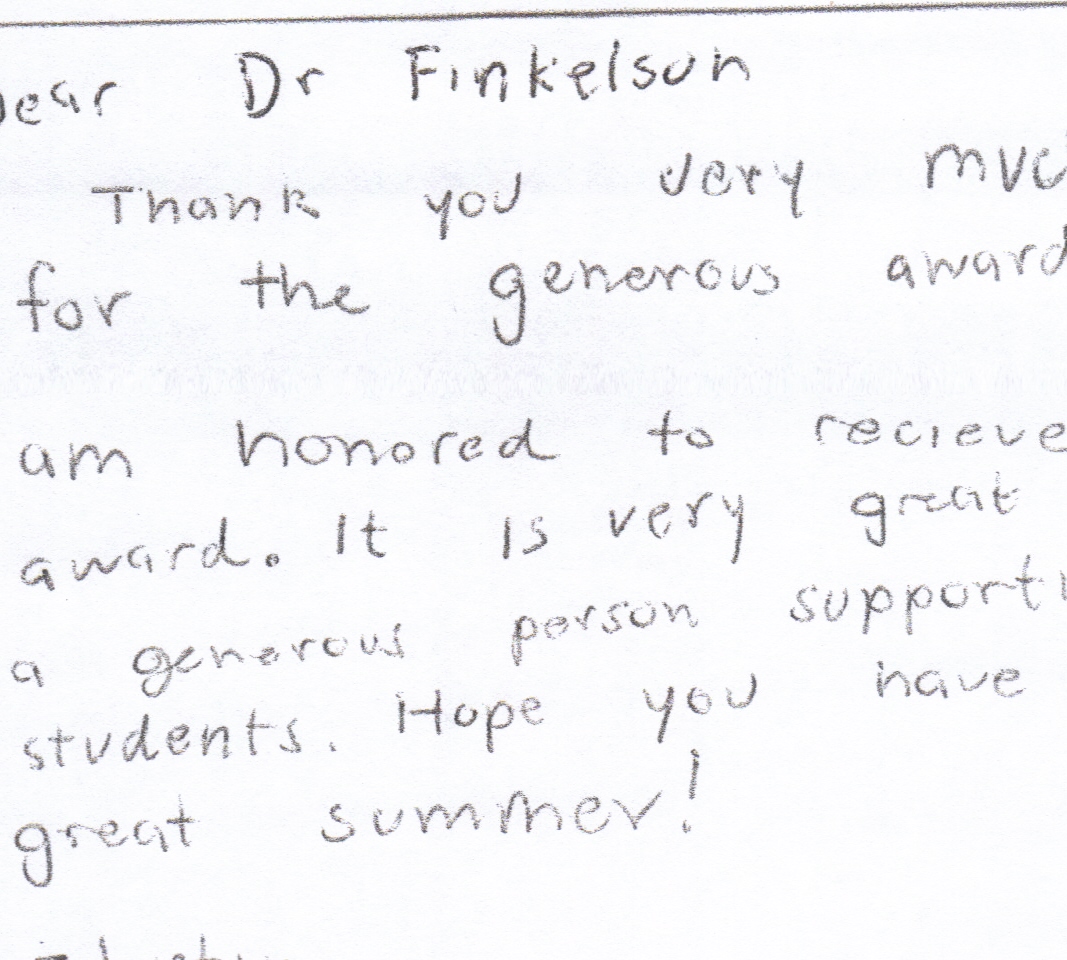 Dear Dr Finkelson
Thank you very muc
for the generous award
am honored to recieve
award. It is very great
a generous person supporti
students. Hope you have
great summer!